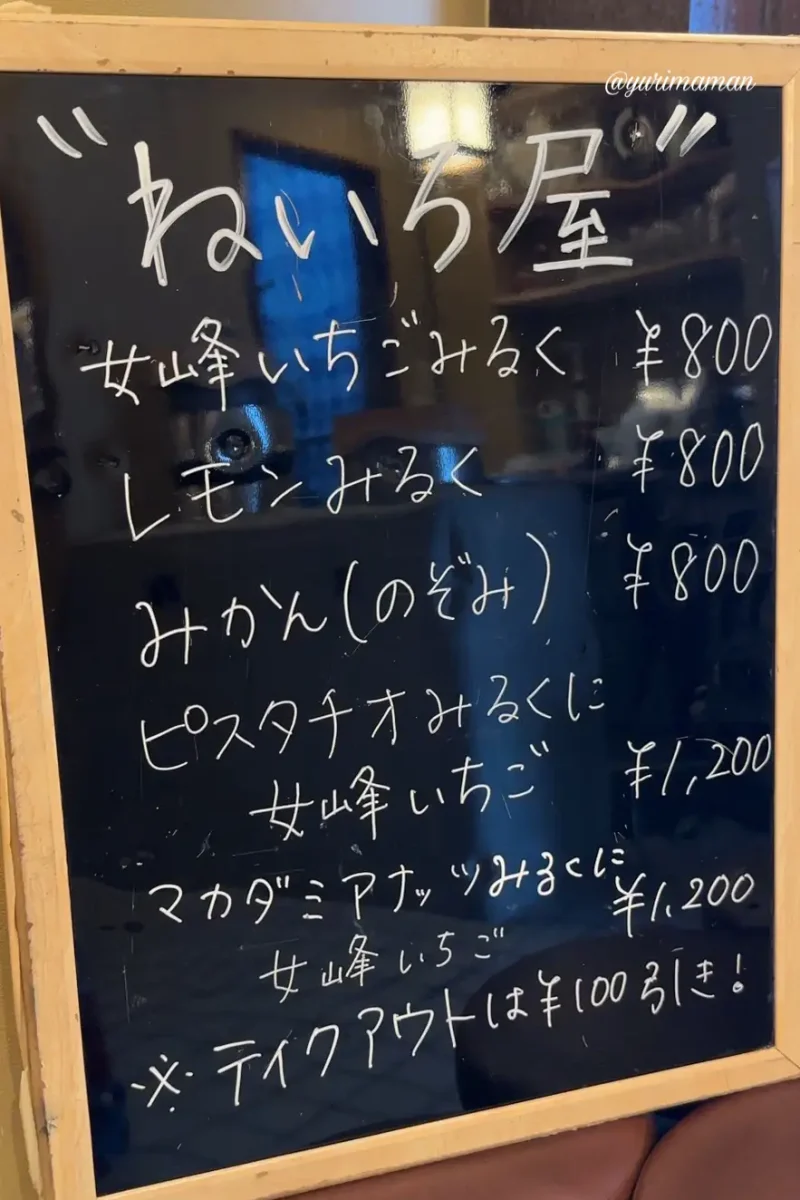 @yurimaman
"ねいろ屋"
女峰いちごみるく ¥800
レモンみるく ¥800
みかん(のぞみ) ¥800
ピスタチオみるくに
女峰いちご ¥1,200
マカダミアナッツみるくに
女峰いちご ¥1,200
※テイクアウトは¥100引き!